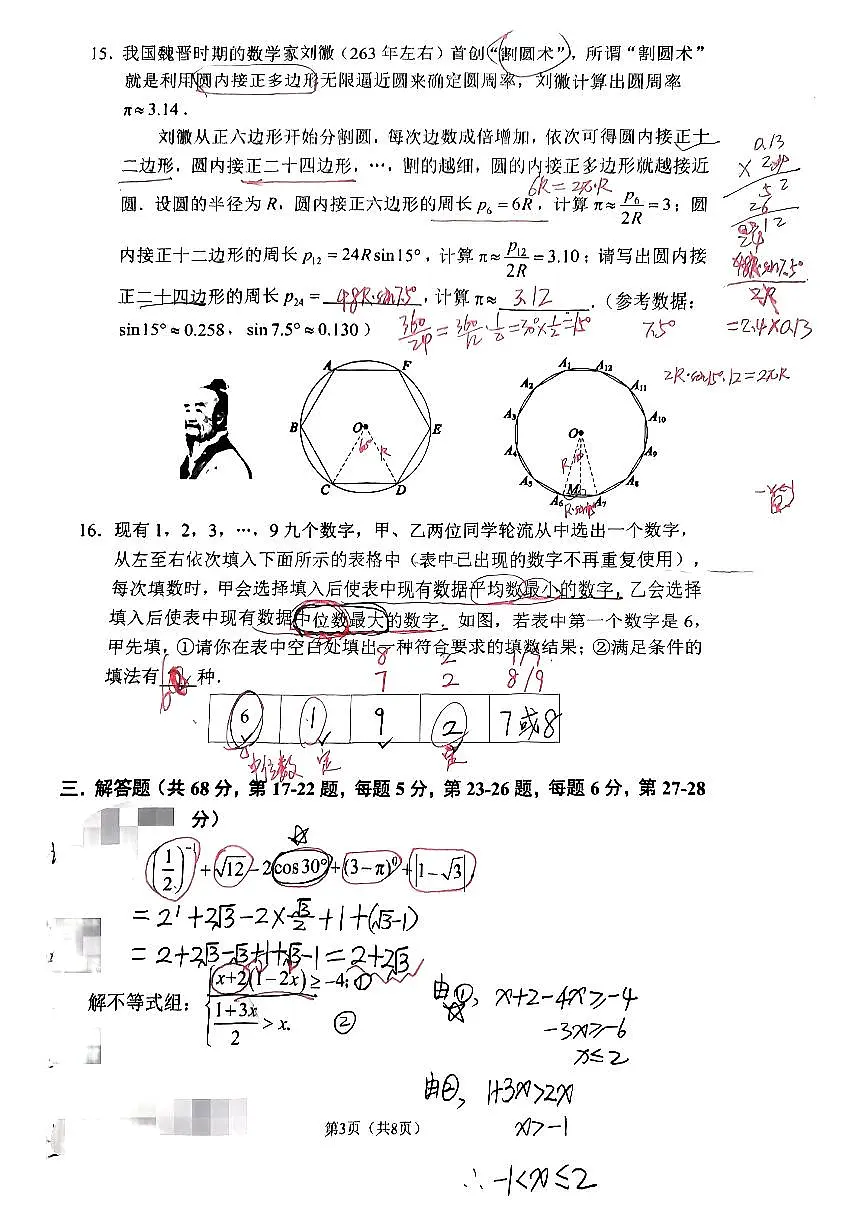 15. 我国魏晋时期的数学家刘徽(263 年左右)首创“割圆术”,所谓“割圆术”
就是利用圆内接正多边形无限逼近圆来确定圆周率,刘徽计算出圆周率
π≈3.14.
刘徽从正六边形开始分割圆,每次边数成倍增加,依次可得圆内接正十
二边形,圆内接正二十四边形,…,割的越细,圆的内接正多边形就越接近
6R=2π·R
圆.设圆的半径为 R,圆内接正六边形的周长 p₆=6R,计算 π≈p₆/2R=3;圆
内接正十二边形的周长 p₁₂=24R sin15°,计算 π≈p₁₂/2R=3.10;请写出圆内接
正二十四边形的周长 p₂₄= 48R·sin7.5°,计算 π≈ 3.12 .(参考数据:
sin15°≈0.258,sin7.5°≈0.130)
360/24=360/12·1/2=30°×1/2=15° 7.5°
0.13
52
26
312
48R·sin7.5°
2R
=2.4×0.13
2R·sin15°·12=2πR
A F
B O E
60° R
C D
A₁ A₁₂
A₂ A₁₁
A₃ A₁₀
O
A₄ A₉
A₅ A₈
A₆ M A₇
16. 现有 1,2,3,…,9 九个数字,甲、乙两位同学轮流从中选出一个数字,
从左至右依次填入下面所示的表格中(表中已出现的数字不再重复使用),
每次填数时,甲会选择填入后使表中现有数据平均数最小的数字,乙会选择
填入后使表中现有数据中位数最大的数字.如图,若表中第一个数字是 6,
甲先填,①请你在表中空白处填出一种符合要求的填数结果;②满足条件的
8 2 7/9
填法有 6 种.
7 2 8/9
6 1 9 2 7或8
中位数 定 定
三.解答题(共 68 分,第 17-22 题,每题 5 分,第 23-26 题,每题 6 分,第 27-28
分)
(1/2)⁻¹+√12-2cos30°+(3-π)⁰+|1-√3|
=2¹+2√3-2×√3/2+1+(√3-1)
=2+2√3-√3+1+√3-1=2+2√3
解不等式组:
x+2(1-2x)≥-4; ①
(1+3x)/2>x. ②
由①, x+2-4x≥-4
-3x≥-6
x≤2
由②, 1+3x>2x
x>-1
第3页(共8页)
∴-1<x≤2